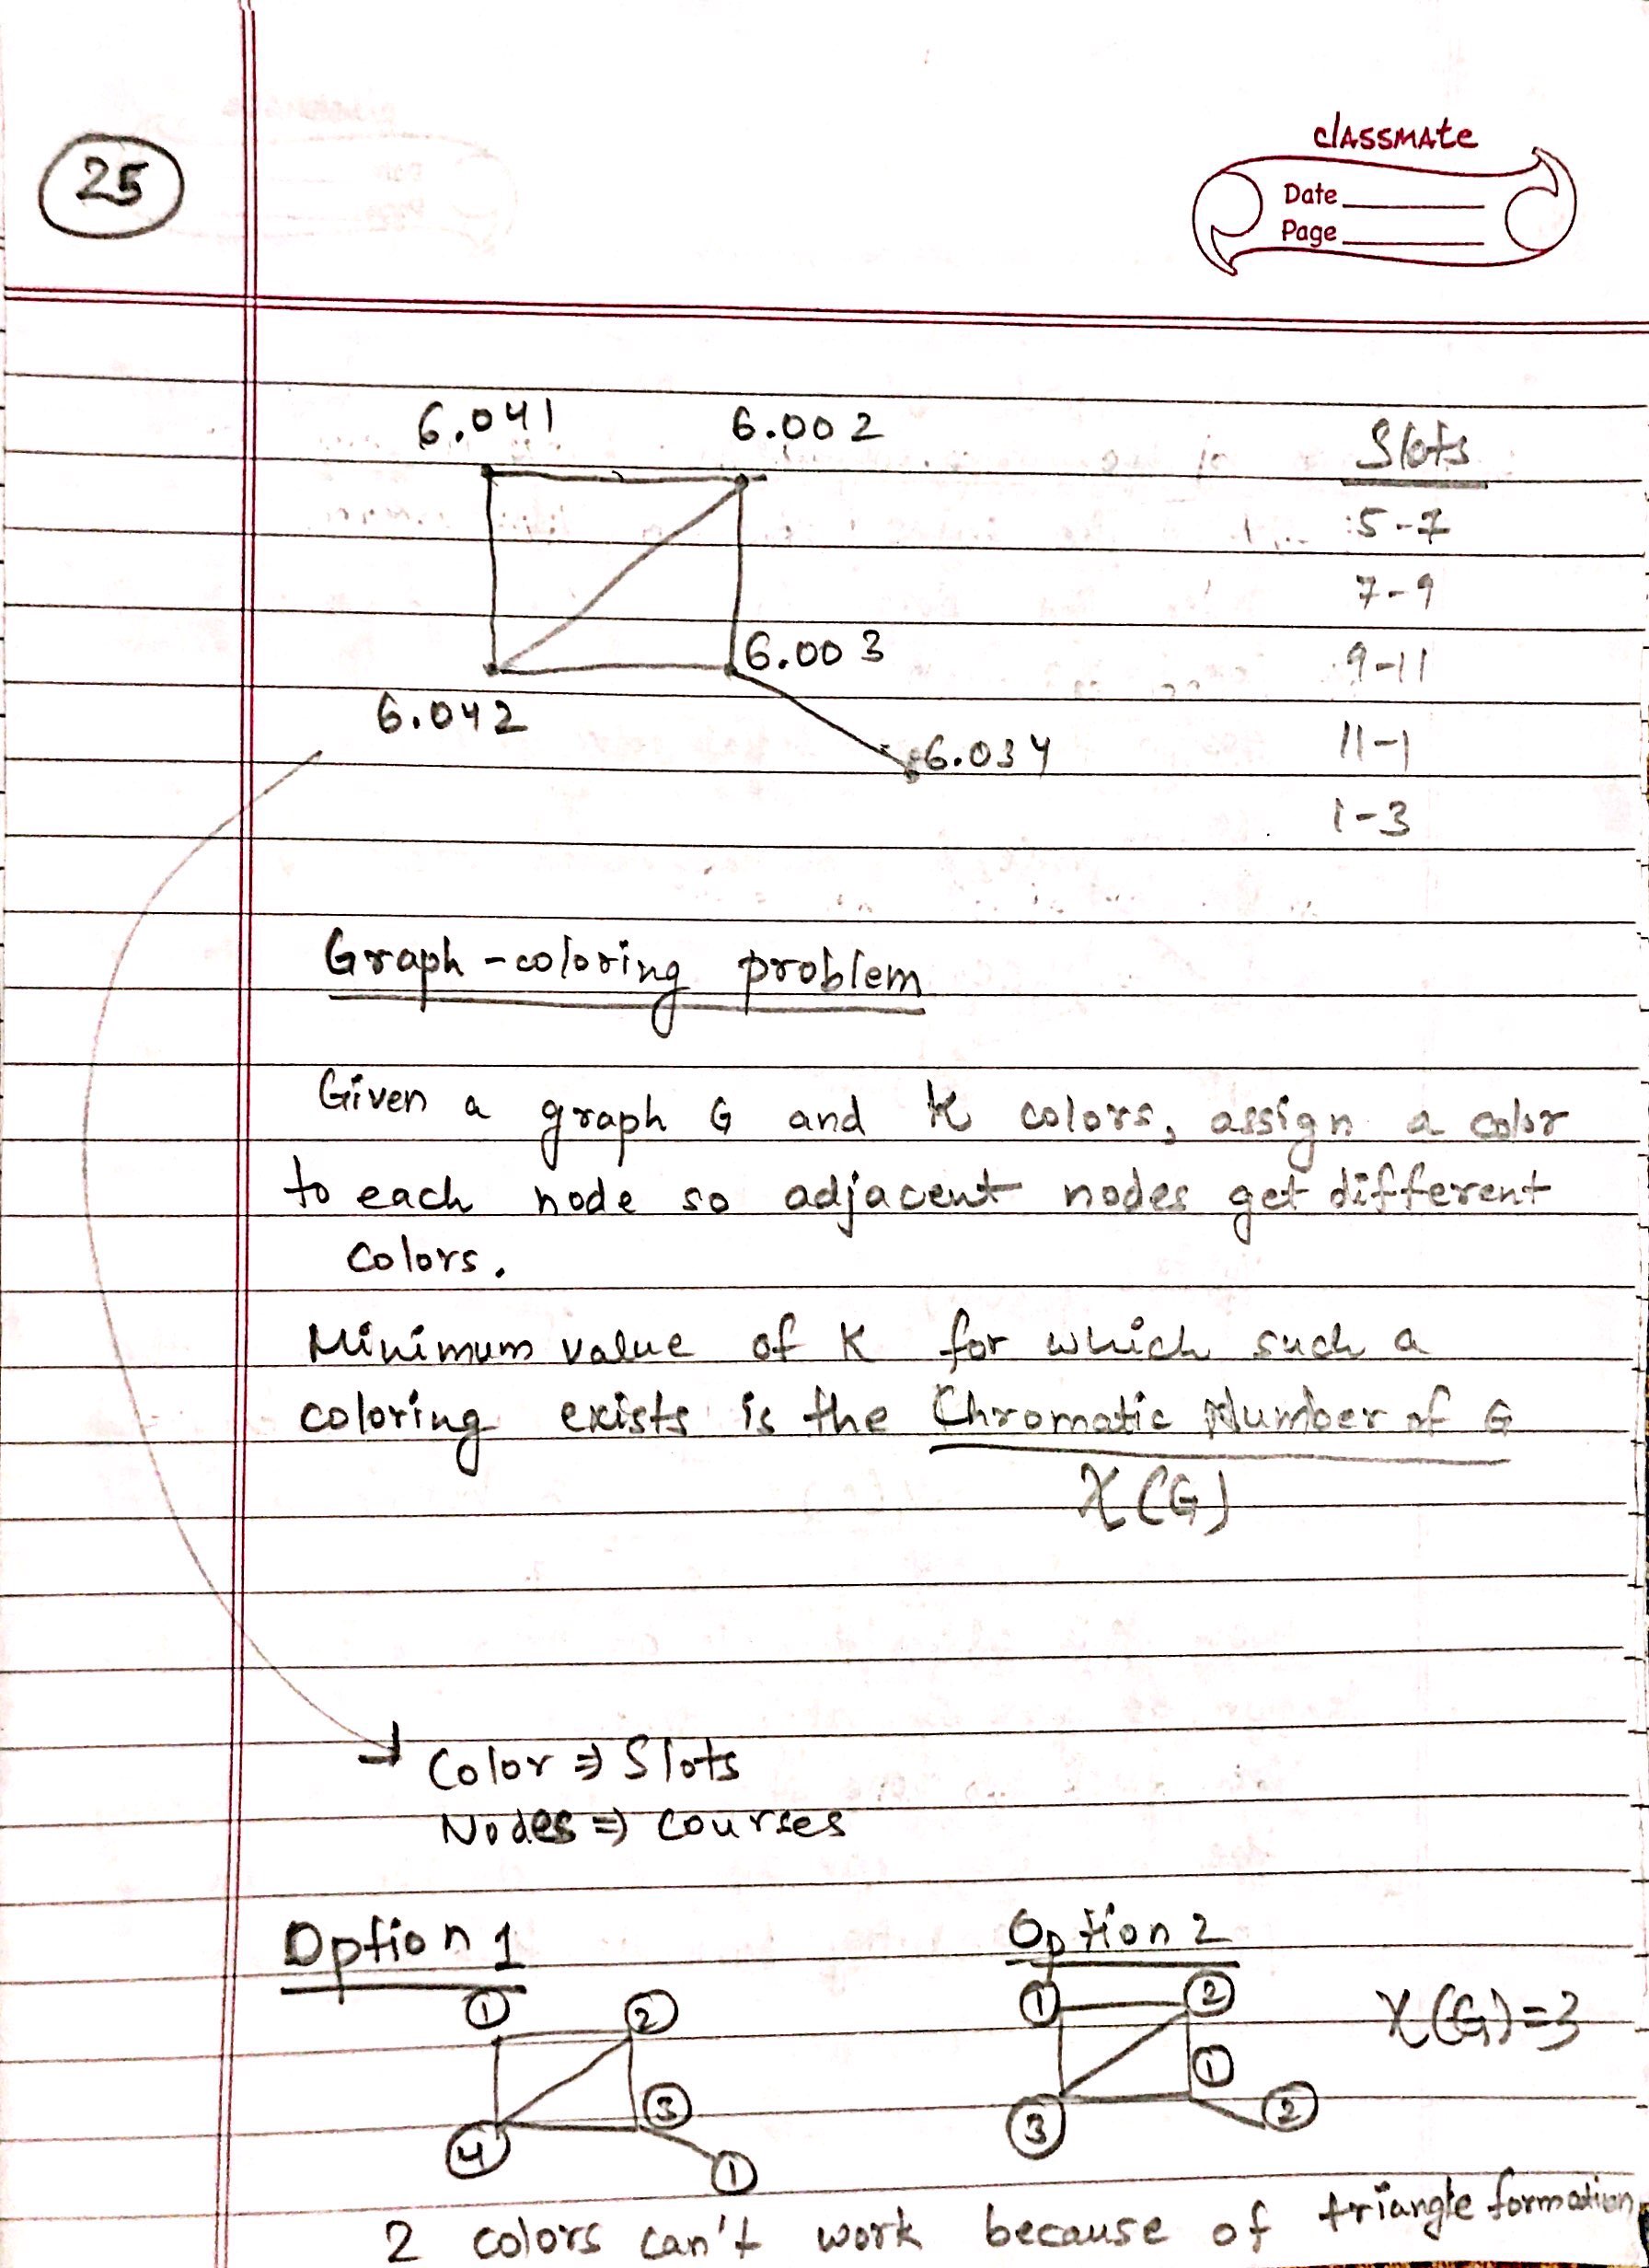 25
classmate
Date
Page
6.041 6.002 Slots
5-7
7-9
6.003
9-11
6.042
11-1
6.034
1-3
Graph-coloring problem
Given a graph G and K colors, assign a color
to each node so adjacent nodes get different
colors.
Minimum value of K for which such a
coloring exists is the Chromatic Number of G
χ(G)
Color ⇒ Slots
Nodes ⇒ Courses
Option 1 Option 2
1 2 1 2 χ(G)=3
3 1
4 3 2
1
2 colors can't work because of triangle formation